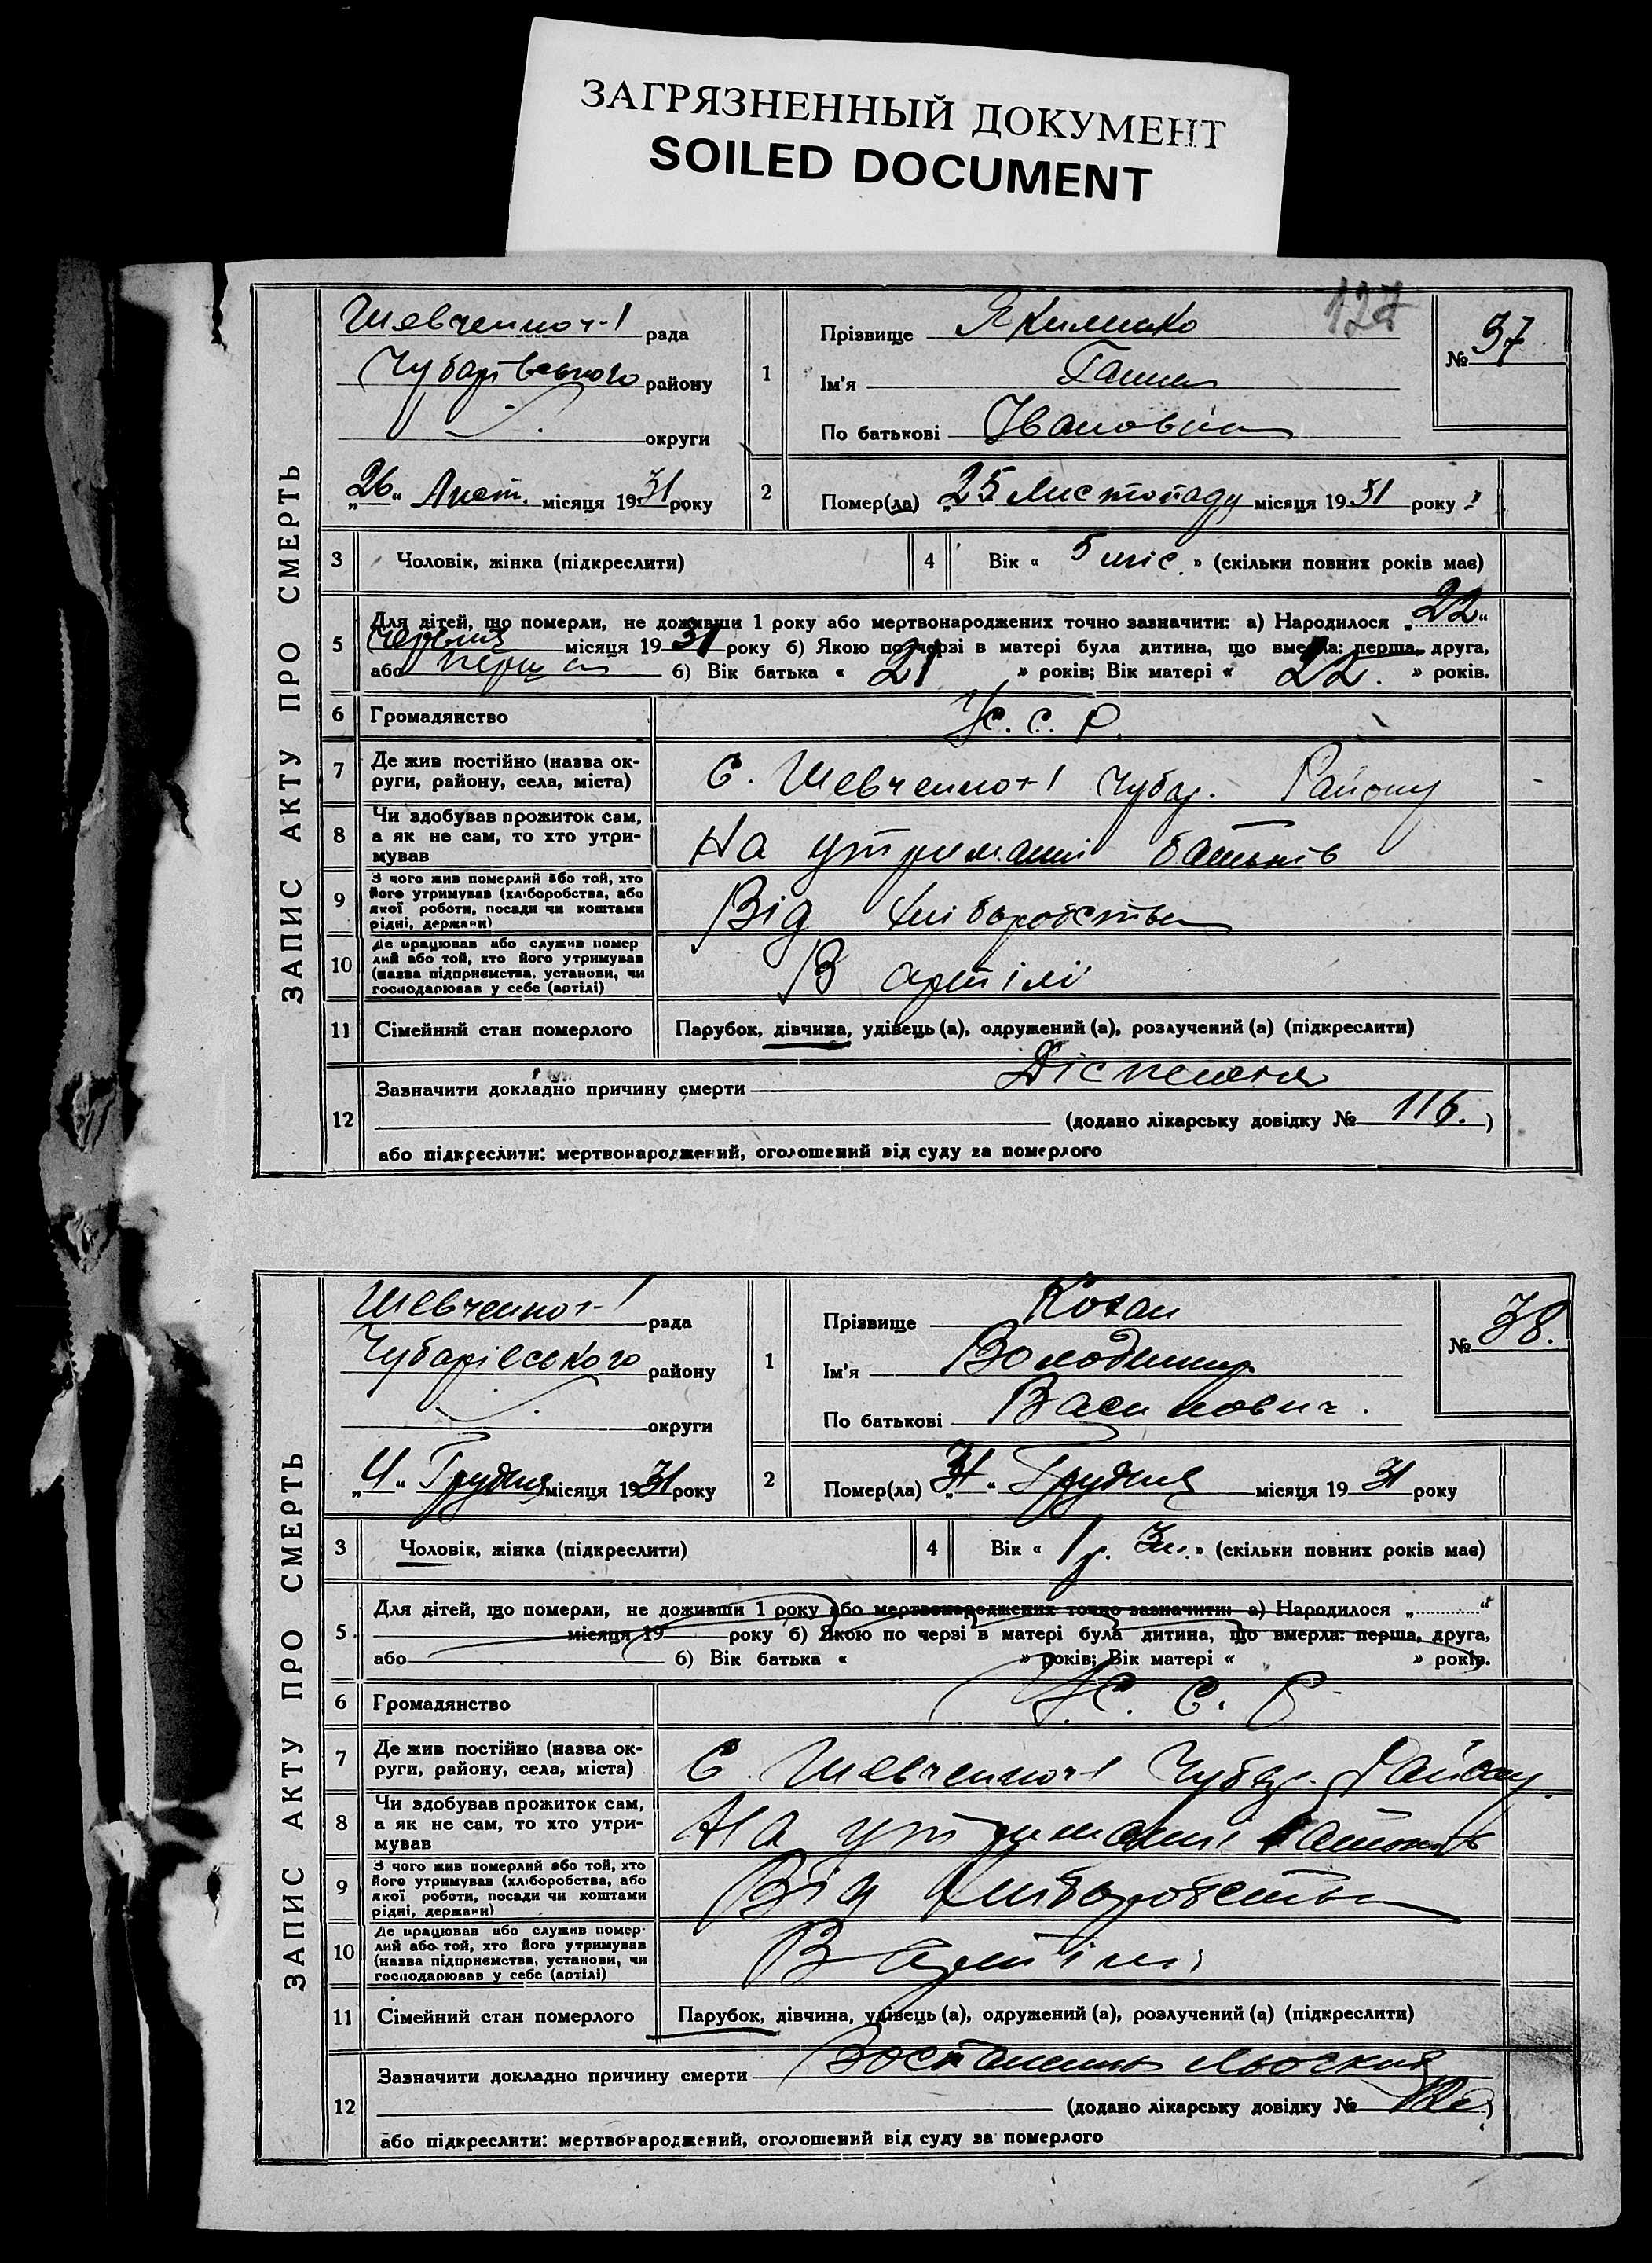 ЗАГРЯЗНЕННЫЙ ДОКУМЕНТ
SOILED DOCUMENT
127
ЗАПИС АКТУ ПРО СМЕРТЬ
Шевченког-І рада
Чубарівського району
округи
„26“ Лист. місяця 1931 року
1 Прізвище Якименко
Ім'я Ганна
По батькові Івановна
№ 37
2 Помер(ла) „25 Листопаду місяця 1931 року
3 Чоловік, жінка (підкреслити)
4 Вік « 5 міс. » (скільки повних років має)
5 Для дітей, що померли, не доживши 1 року або мертвонароджених точно зазначити: а) Народилося „22“
Червня місяця 1931 року б) Якою по черзі в матері була дитина, що вмерла: перша, друга,
або перша б) Вік батька « 21 » років; Вік матері « 22. » років.
6 Громадянство У.С.С.Р.
7 Де жив постійно (назва округи, району, села, міста) С. Шевченког-І Чубар. Району
8 Чи здобував прожиток сам, а як не сам, то хто утримував На утриманні батьків
9 З чого жив померлий або той, хто його утримував (хліборобства, або якої роботи, посади чи коштами рідні, держави) Від хліборобства
10 Де працював або служив померлий або той, хто його утримував (назва підприємства, установи, чи господарював у себе (артілі) В артілі
11 Сімейний стан померлого Парубок, дівчина, удівець (а), одружений (а), розлучений (а) (підкреслити)
12 Зазначити докладно причину смерти Діспепсія
(додано лікарську довідку № 116.)
або підкреслити: мертвонароджений, оголошений від суду за померлого
ЗАПИС АКТУ ПРО СМЕРТЬ
Шевченког-І рада
Чубарівського району
округи
„4“ Грудня місяця 1931 року
1 Прізвище
Ім'я Володимир
По батькові Васильович.
№ 38.
2 Помер(ла) Грудня місяця 1931 року
3 Чоловік, жінка (підкреслити)
4 Вік « 1 р. 3 м. » (скільки повних років має)
5. Для дітей, що померли, не доживши 1 року або мертвонароджених точно зазначити: а) Народилося „ “
місяця 19 року б) Якою по черзі в матері була дитина, що вмерла: перша, друга,
або б) Вік батька « » років; Вік матері « » років.
6 Громадянство У.С.С.Р
7 Де жив постійно (назва округи, району, села, міста) С. Шевченког-І Чубар. Району.
8 Чи здобував прожиток сам, а як не сам, то хто утримував На утриманні батьків
9 З чого жив померлий або той, хто його утримував (хліборобства, або якої роботи, посади чи коштами рідні, держави) Від хліборобства
10 Де працював або служив померлий або той, хто його утримував (назва підприємства, установи, чи господарював у себе (артілі) В артілі
11 Сімейний стан померлого Парубок, дівчина, удівець (а), одружений (а), розлучений (а) (підкреслити)
12 Зазначити докладно причину смерти
(додано лікарську довідку №)
або підкреслити: мертвонароджений, оголошений від суду за померлого